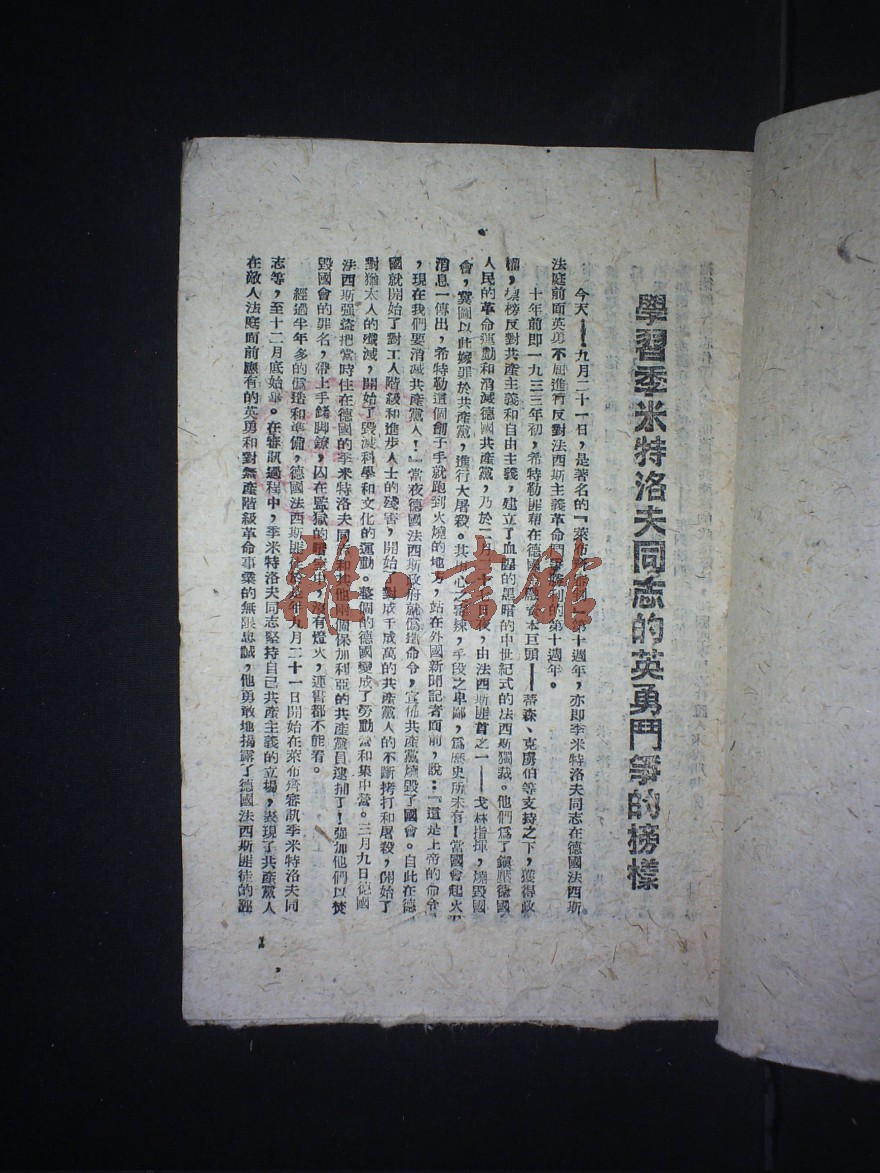 學習季米特洛夫同志的英勇鬥爭的榜樣
今天——九月二十一日，是著名的『萊布齊審判』第十週年，亦即季米特洛夫同志在德國法西斯
法庭前面英勇不屈進行反對法西斯主義革命鬥爭勝利的第十週年。
十年前即一九三三年初，希特勒匪藉在德國金融資本巨頭——蒂森、克虜伯等支持之下，獲得政
權，標榜反對共產主義和自由主義，建立了血腥的黑暗的中世紀式的法西斯獨裁。他們爲了鎮壓德國
人民的革命運動和消滅德國共產黨，乃於二月二十七日夜，由法西斯匪首之一——戈林指揮，燒毀國
會，冀圖以此嫁罪於共產黨，進行大屠殺。其居心之毒辣，手段之卑鄙，爲歷史所未有！當國會起火
消息一傳出，希特勒這個劊子手就跑到火燒的地方，站在外國新聞記者面前，說：『這是上帝的命令
，現在我們要消滅共產黨人！』當夜德國法西斯政府就僞造命令，宣佈共產黨燒毀了國會。自此在德
國就開始了對工人階級和進步人士的殘害，開始了對成千成萬的共產黨人的不斷拷打和屠殺，開始了
對猶太人的殲滅，開始了毀滅科學和文化的運動。整個的德國變成了勞動營和集中營。三月九日德國
法西斯強盜把當時住在德國的季米特洛夫同志和其他兩個保加利亞的共產黨員逮捕了！強加他們以焚
毀國會的罪名，帶上手銬脚鐐，囚在監獄的暗室中，沒有燈火，連書都不能看。
經過半年多的僞造和準備，德國法西斯匪徒於是年九月二十一日開始在萊布齊審訊季米特洛夫同
志等，至十二月底始畢。在審訊過程中，季米特洛夫同志堅持自己共產主義的立場，表現了共產黨人
在敵人法庭面前應有的英勇和對無產階級革命事業的無限忠誠，他勇敢地揭露了德國法西斯匪徒的誣
1
雜·書館